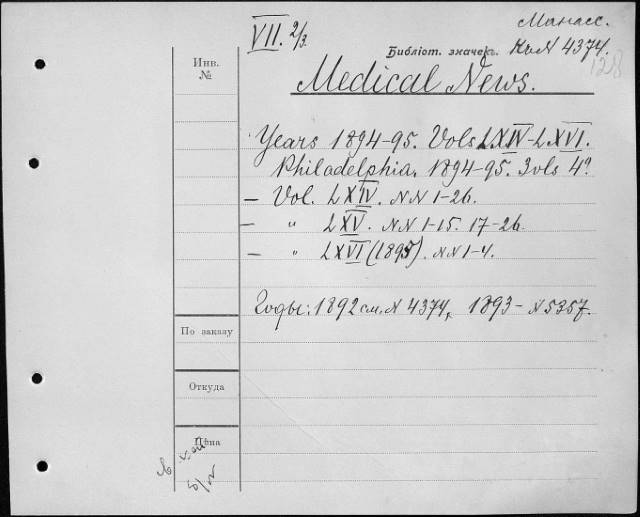 VII. 2/3.
Манасс.
Библіот. значекъ. Къ N 4374.
128
Инв.
№
Medical News.
Years 1894-95. Vols LXIV-LXVI.
Philadelphia. 1894-95. 3 vls 4º.
— Vol. LXIV. NN 1-26.
— " LXV. NN 1-15. 17-26.
— " LXVI (1895). NN 1-4.
Годы: 1892 см. N 4374, 1893 - N 5357.
По заказу
Откуда
Цѣна